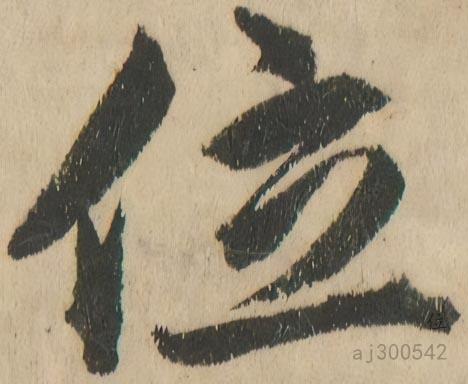 位
位
aj300542